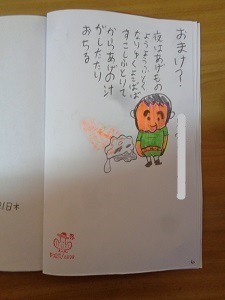 おまけ?!
夜はあげもの
ようようふとく
なりゆくよこばら
すこしふとりて
からあげの汁
がしたたり
おちる